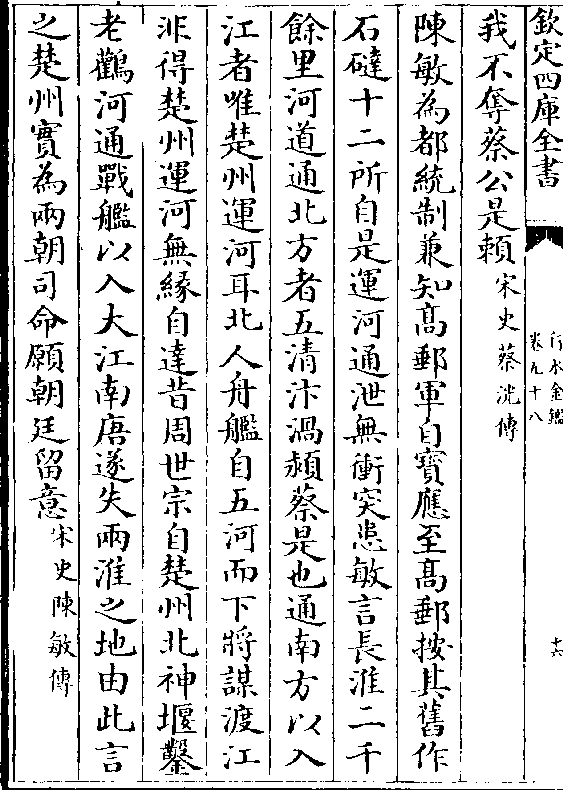 欽定四庫全書
行水金鑑
卷九十八
十六
我不奪蔡公是賴宋史蔡洸傳
陳敏為都統制兼知髙郵軍自寶應至髙郵按其舊作
石䃮十二所自是運河通泄無衝突患敏言長淮二千
餘里河道通北方者五清汴渦潁蔡是也通南方以入
江者唯楚州運河耳北人舟艦自五河而下將謀渡江
非得楚州運河無縁自達昔周世宗自楚州北神堰鑿
老鸛河通戰艦以入大江南唐遂失兩淮之地由此言
之楚州實為兩朝司命願朝廷留意宋史陳敏傳